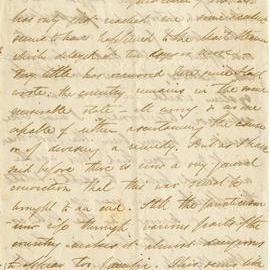 has only just reached me. Some accident
seems to have happened to the last steamer
which delayed it ten days or more.
Very little has occurred here since I last
wrote. The country remains in the same
miserable state – as every one is as
capable of either ascertaining the cause
or of devising a remedy. But as I have
said before there is now a very general
conviction that this war must be
brought to an end. Still the
runs up through various parts of the
country renders it almost dangerous
to appear too pacific. This